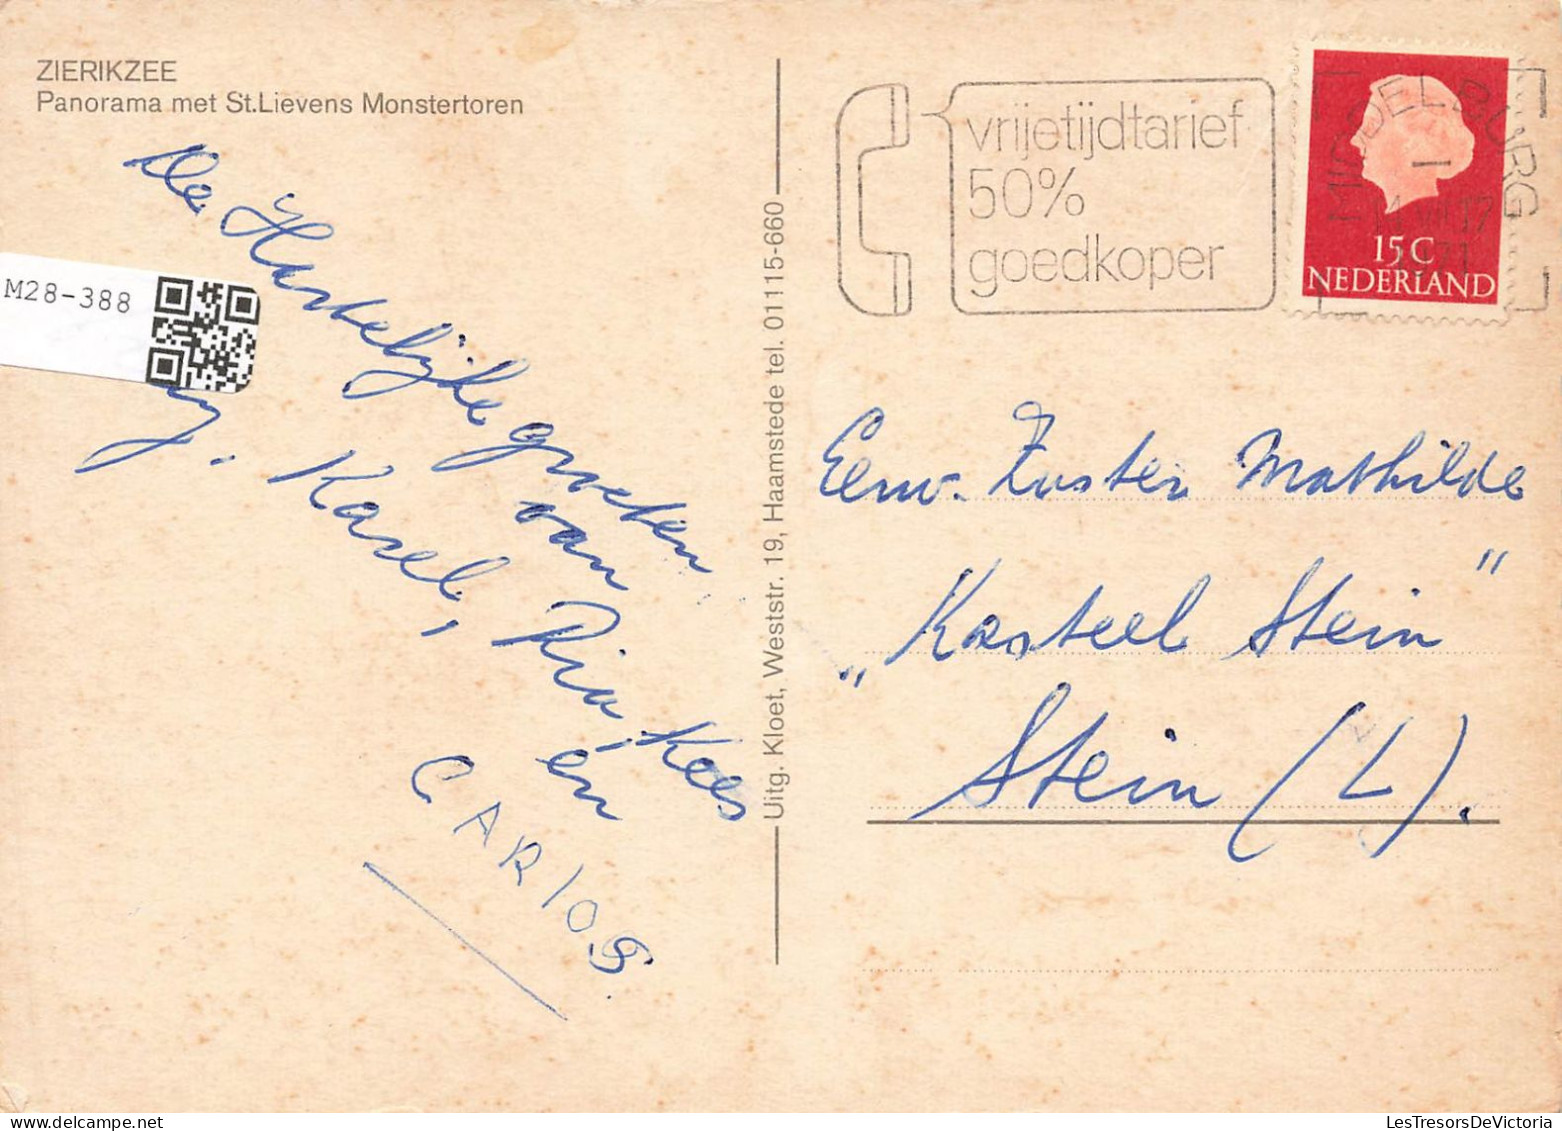 ZIERIKZEE
Panorama met St.Lievens Monstertoren
De Hartelijke groeten
van Ria, Kees
Karel, en
CARlOS.
M28-388
Uitg. Kloet, Weststr. 19, Haamstede tel. 01115-660
vrijetijdtarief
50%
goedkoper
MIDDELBURG
14 VII 17
1971
15 C
NEDERLAND
Eerw. Zuster Mathilde
„Kasteel Stein"
Stein (L).
LesTresorsDeVictoria